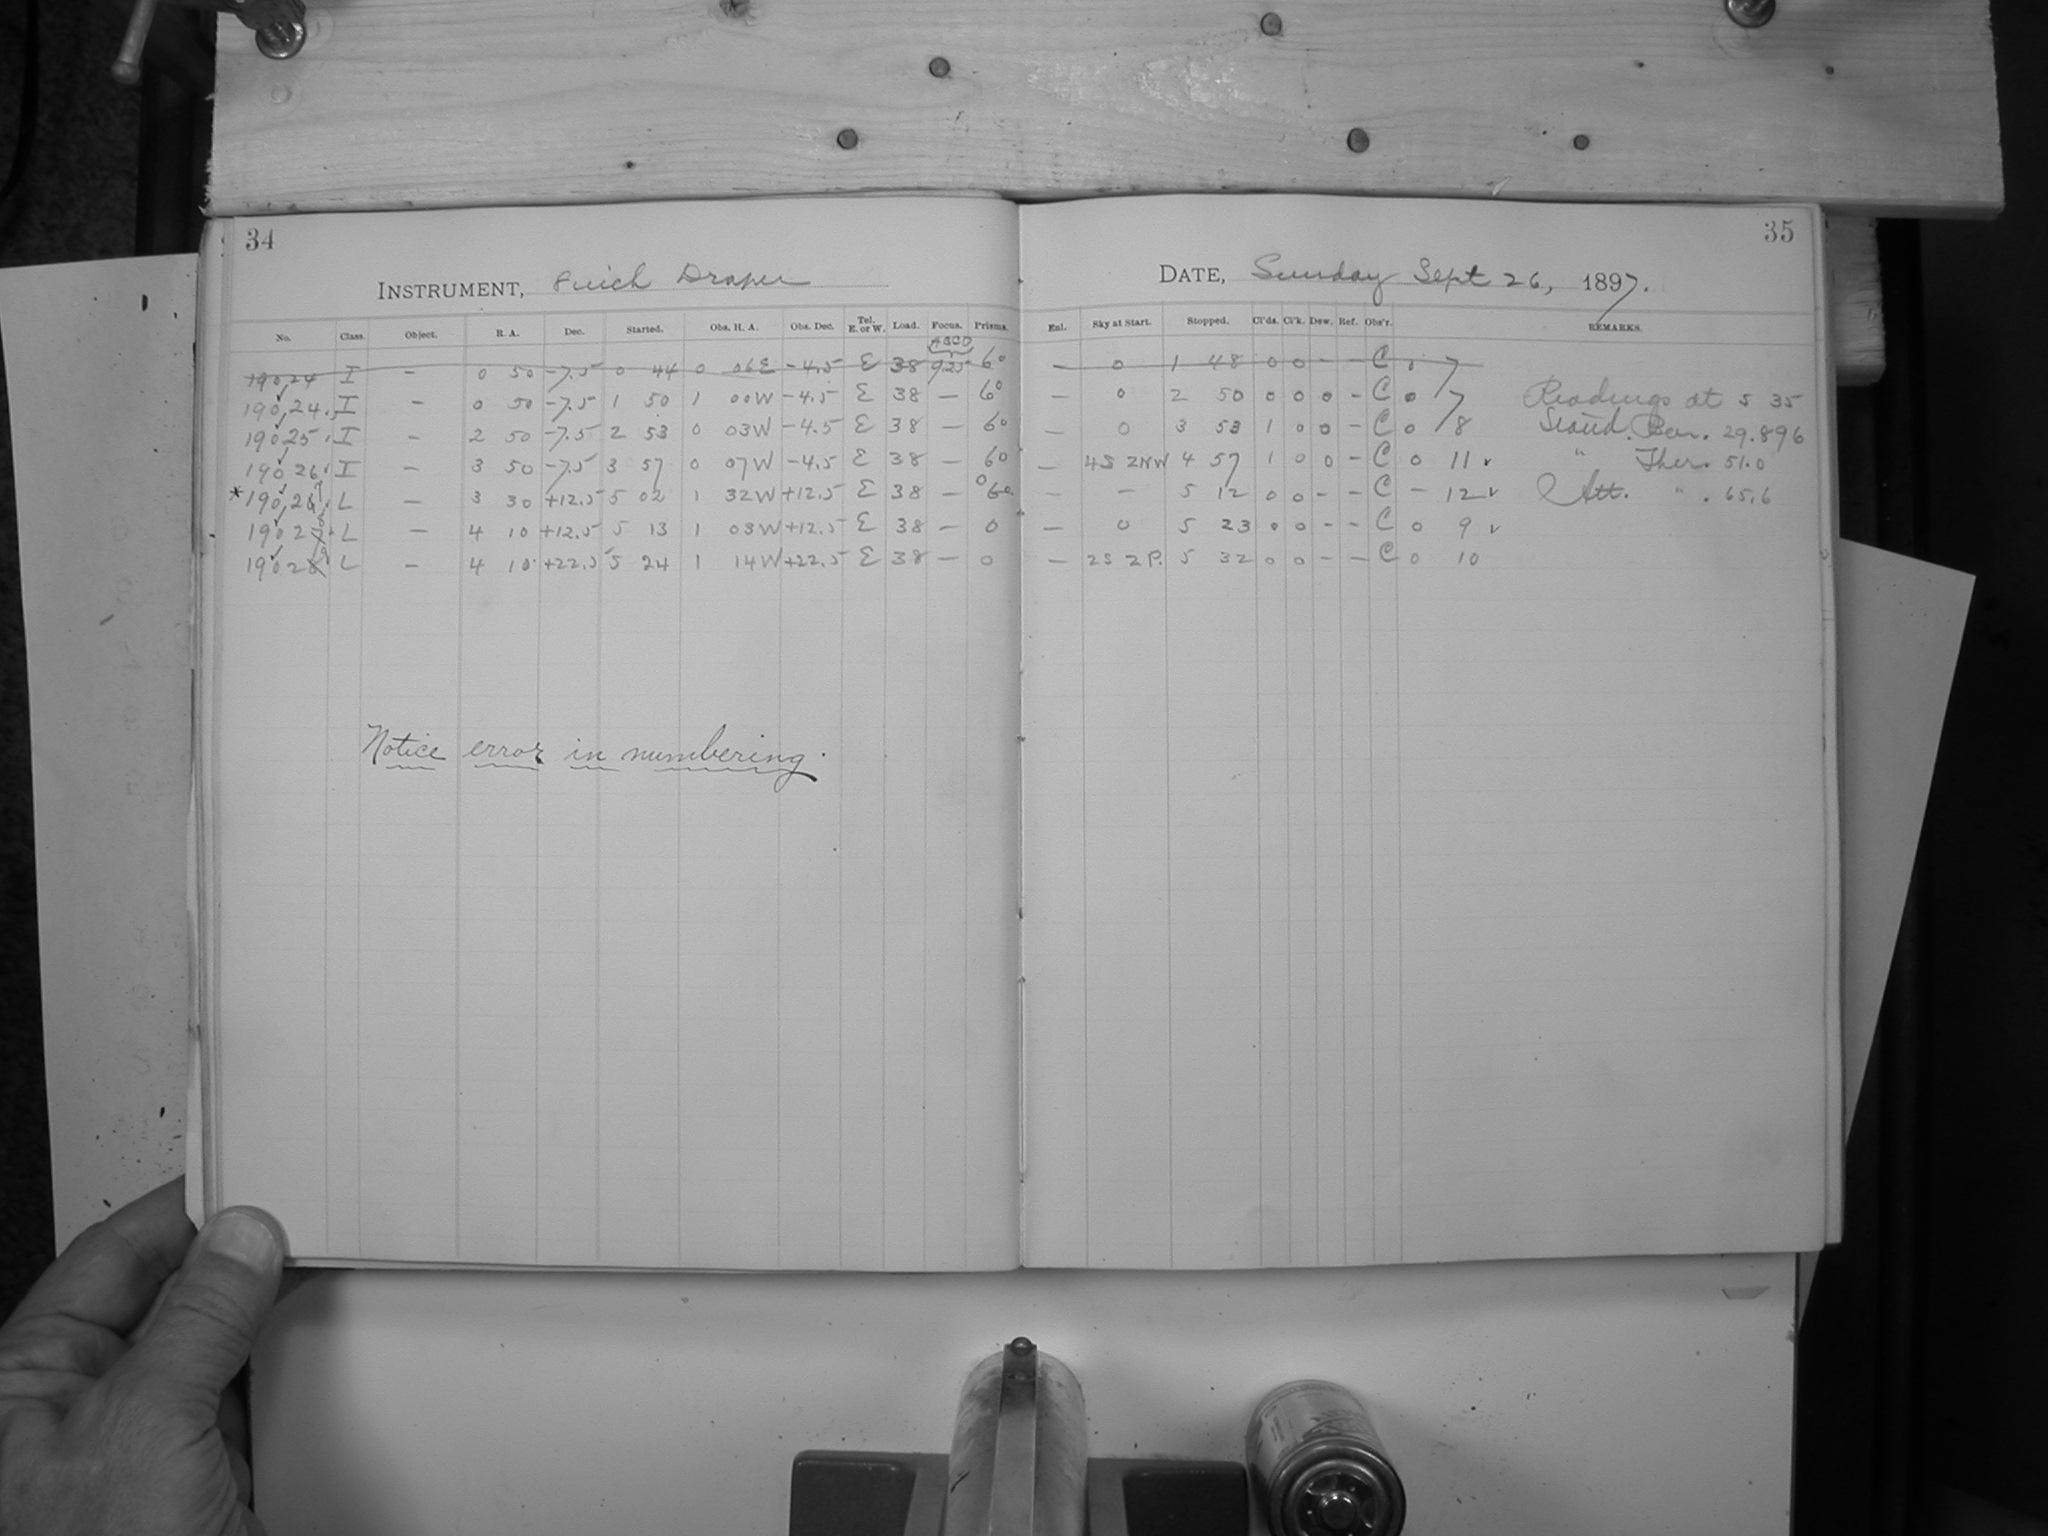 34
35
INSTRUMENT, 8 inch Draper
DATE, Sunday Sept 26, 1897.
No. Class. Object. R. A. Dec. Started. Obs. H. A. Obs. Dec. Tel. E. or W. Load. Focus. Prisms. Enl. Sky at Start. Stopped. Cl'ds. Cl'k. Dew. Ref. Obs'r. REMARKS.
ABCD
19024 I - 0 50 -7.5 0 44 0 06E -4.5 E 38 925 60 - 0 1 48 0 0 - - C 0 7
19024 I - 0 50 -7.5 1 50 1 00W -4.5 E 38 - 60 - 0 2 50 0 0 0 - C 0 7 Readings at 5 35
19025 I - 2 50 -7.5 2 53 0 03W -4.5 E 38 - 60 - 0 3 53 1 0 0 - C 0 8 Stand. Bar. 29.896
19026 I - 3 50 -7.5 3 57 0 07W -4.5 E 38 - 60 - 4S 2NW 4 57 1 0 0 - C 0 11 " Ther. 51.0
*19026 7 L - 3 30 +12.5 5 02 1 32W +12.5 E 38 - 0 60 - - 5 12 0 0 - - C - 12 Att. " . 65.6
19027 8 L - 4 10 +12.5 5 13 1 03W +12.5 E 38 - 0 - 0 5 23 0 0 - - C 0 9
19028 9 L - 4 10 +22.5 5 24 1 14W +22.5 E 38 - 0 - 2S 2P. 5 32 0 0 - - C 0 10
Notice error in numbering.